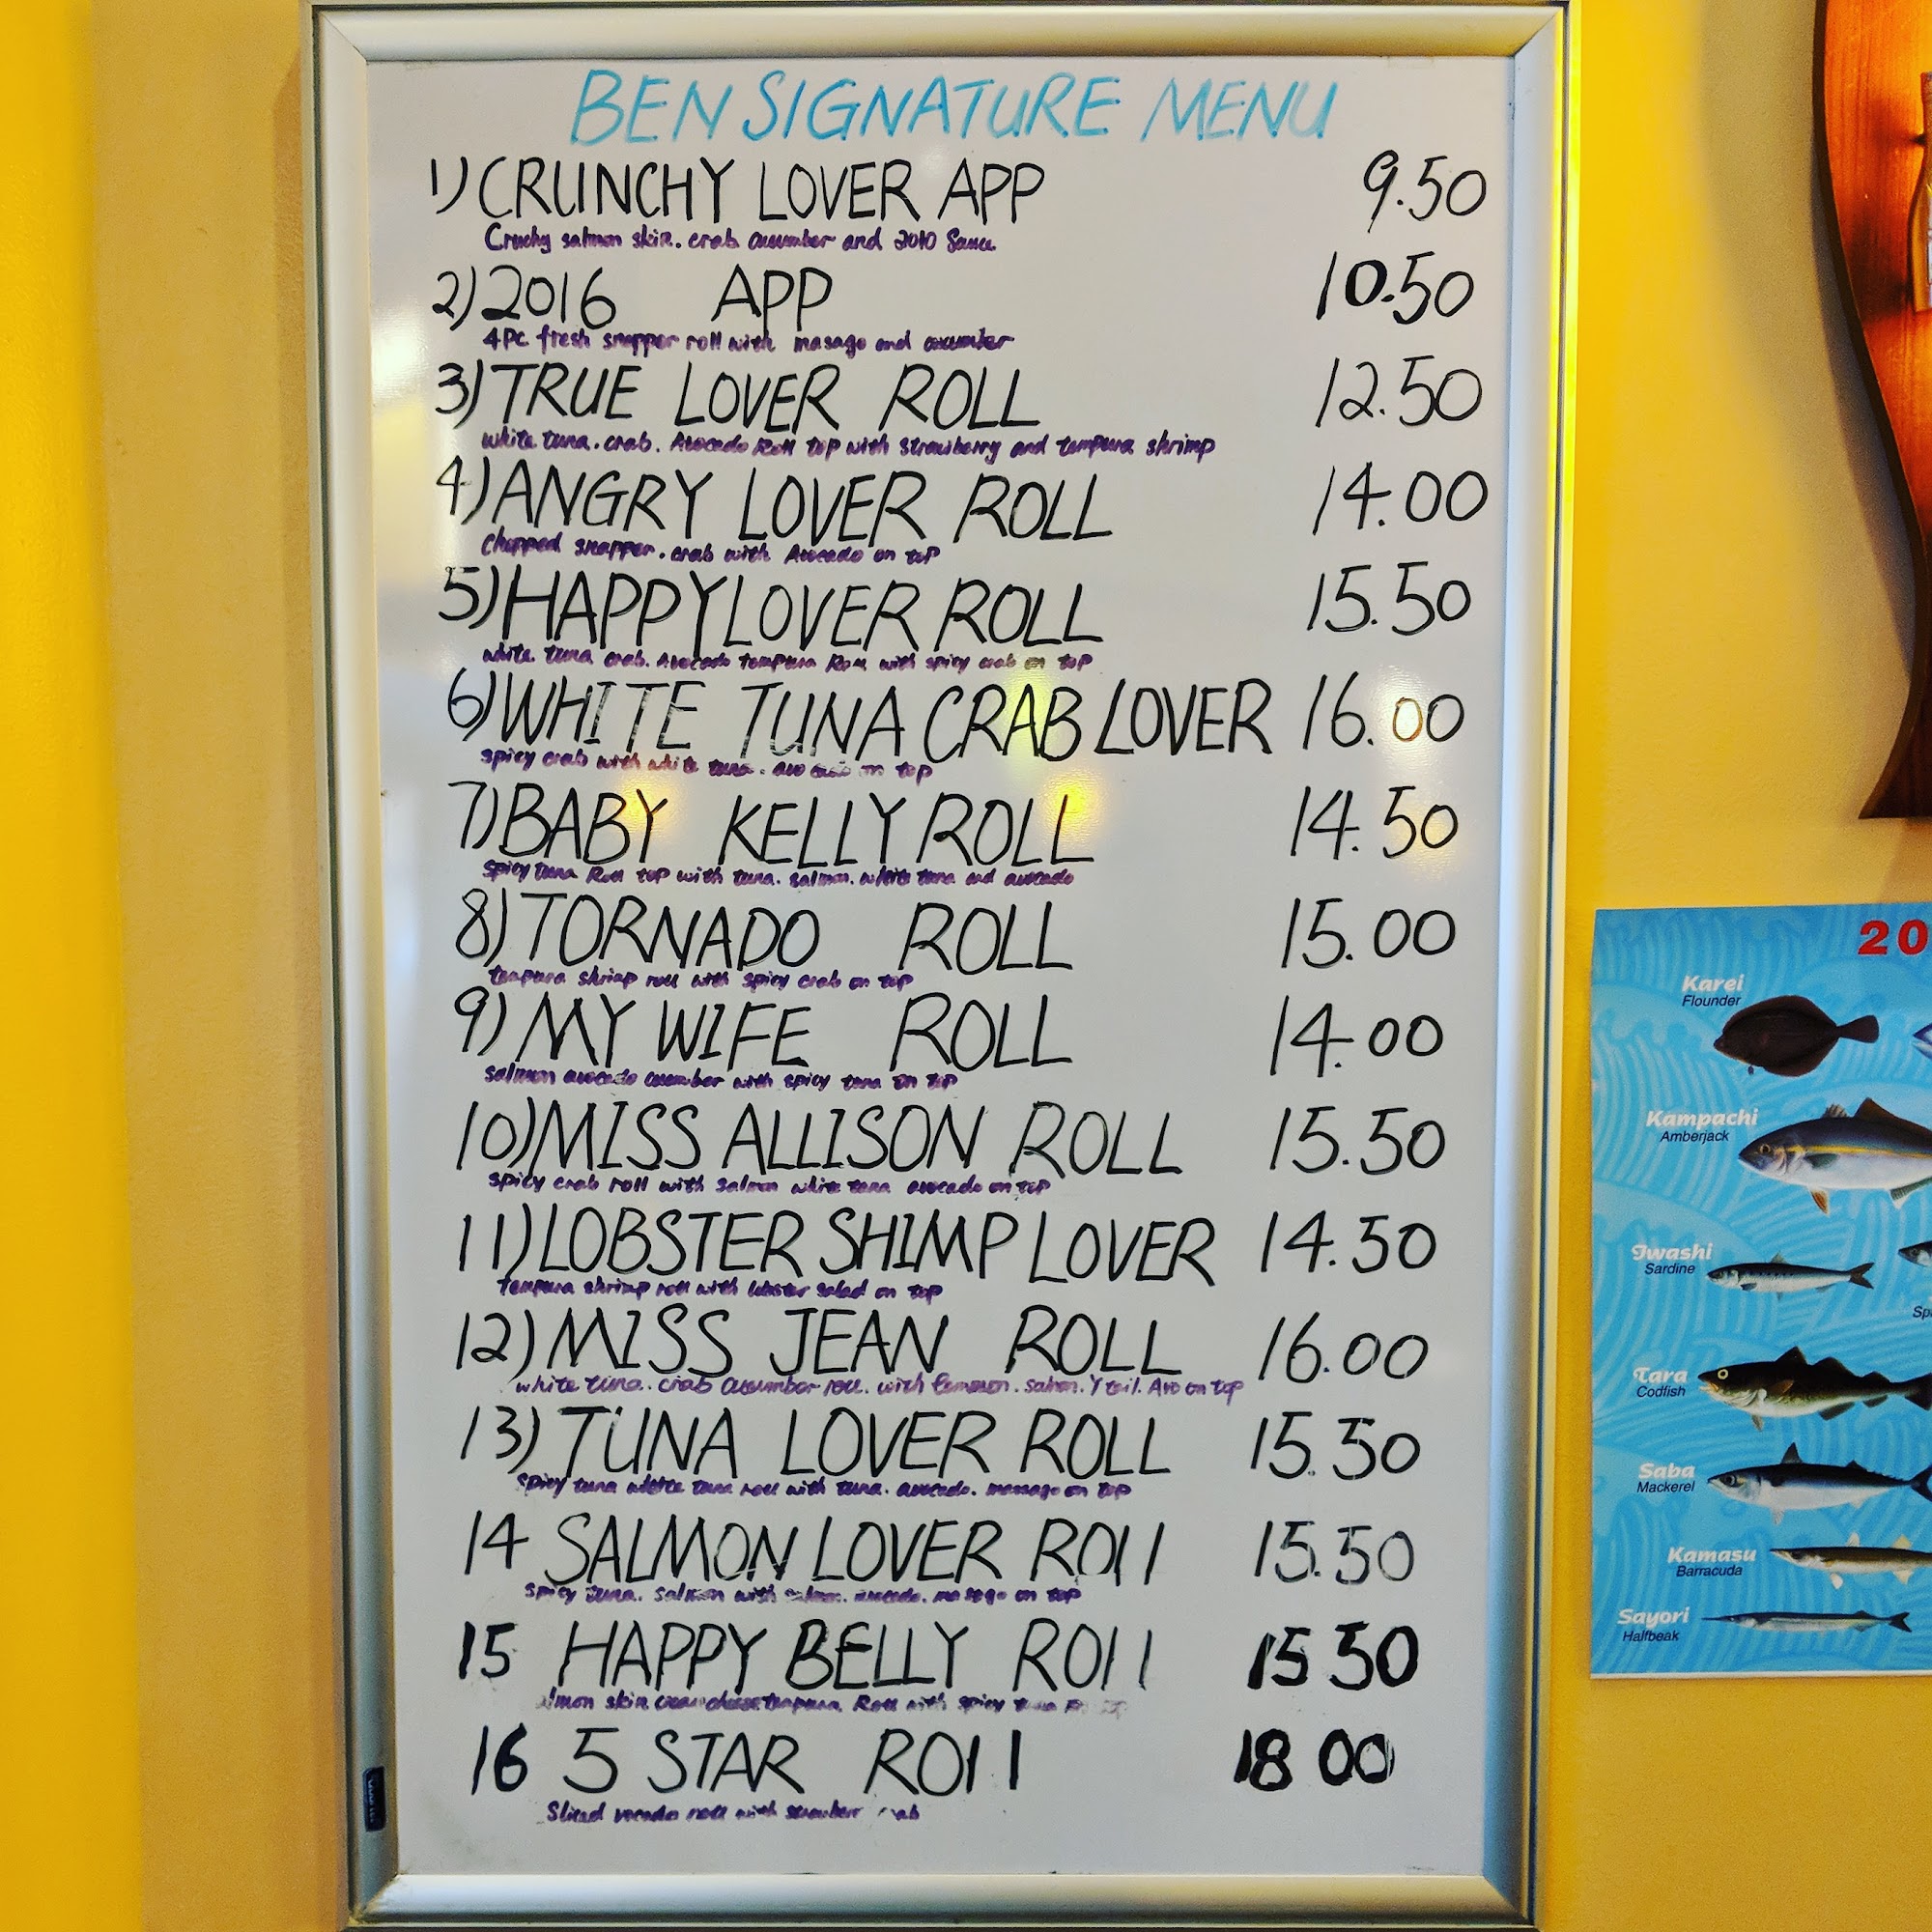 BEN SIGNATURE MENU
1) CRUNCHY LOVER APP 9.50
Cruchy salmon skin. crab cucumber and 2010 Sauce
2) 2016 APP 10.50
4PC fresh snapper roll with masago and cucumber
3) TRUE LOVER ROLL 12.50
white tuna. crab. Avocado Roll top with strawberry and tempura shrimp
4) ANGRY LOVER ROLL 14.00
Chopped snapper. crab with Avocado on top
5) HAPPY LOVER ROLL 15.50
white tuna crab. Avocado tempura Roll with spicy crab on top
6) WHITE TUNA CRAB LOVER 16.00
spicy crab with white tuna. avocado on top
7) BABY KELLY ROLL 14.50
Spicy tuna Roll top with tuna. salmon. white tuna and avocado
8) TORNADO ROLL 15.00
tempura shrimp roll with spicy crab on top
9) MY WIFE ROLL 14.00
salmon avocado cucumber with spicy tuna on top
10) MISS ALLISON ROLL 15.50
spicy crab roll with salmon white tuna avocado on top
11) LOBSTER SHIMP LOVER 14.50
tempura shrimp roll with lobster salad on top
12) MISS JEAN ROLL 16.00
white tuna. crab cucumber roll. with salmon. Y tail. Avo on top
13) TUNA LOVER ROLL 15.50
Spicy tuna white tuna roll with tuna. avocado. massago on top
14 SALMON LOVER ROll 15.50
spicy tuna. salmon with avocado. masago on top
15 HAPPY BELLY ROll 15 50
lmon skin cream cheese tempura Roll with spicy tuna
16 5 STAR ROll 18 00
Sliced vocado roll with
20
Karei
Flounder
Kampachi
Amberjack
Iwashi
Sardine
Sp
Tara
Codfish
Saba
Mackerel
Kamasu
Barracuda
Sayori
Halfbeak